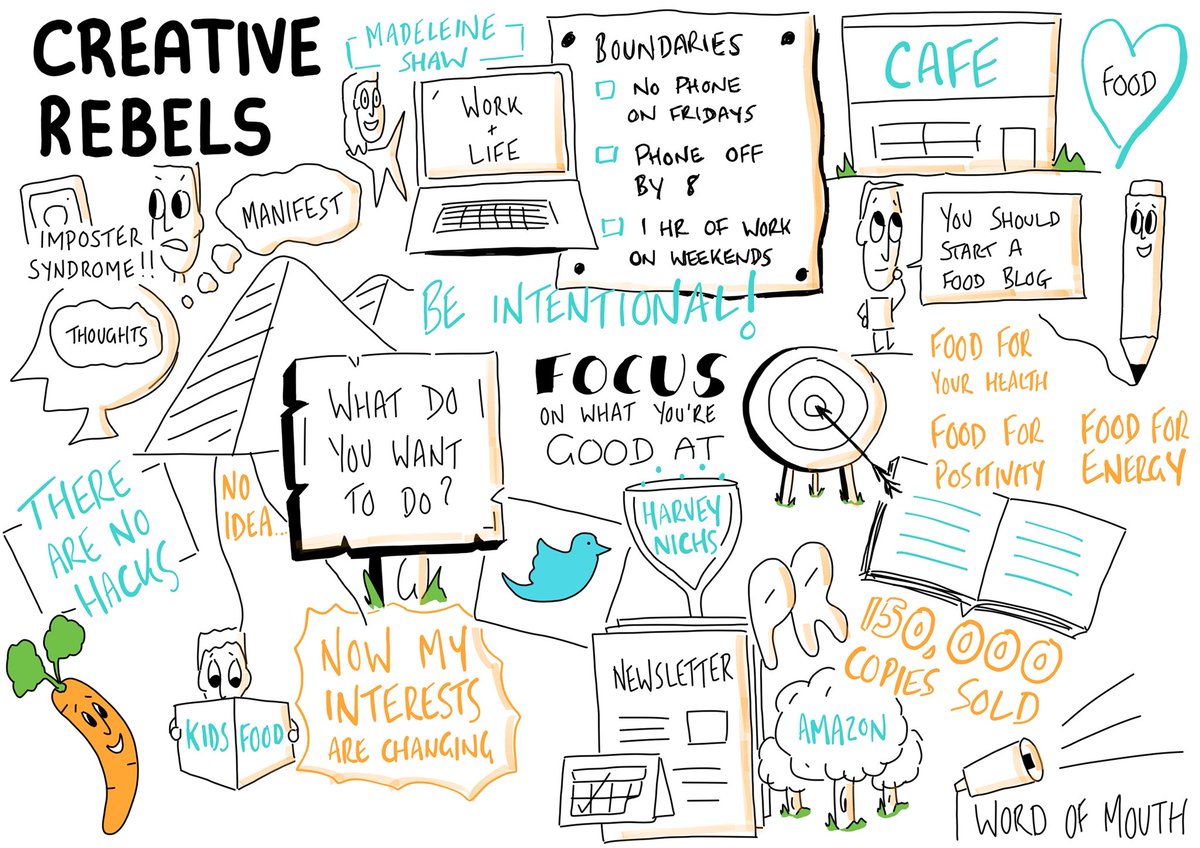 CREATIVE
REBELS
MADELEINE
SHAW
WORK
+
LIFE
BOUNDARIES
NO PHONE
ON FRIDAYS
PHONE OFF
BY 8
1 HR OF WORK
ON WEEKENDS
CAFE
FOOD
IMPOSTER
SYNDROME!!
MANIFEST
THOUGHTS
BE INTENTIONAL!
YOU SHOULD
START A
FOOD BLOG
WHAT DO
YOU WANT
TO DO?
FOCUS
ON WHAT YOU'RE
GOOD AT
FOOD FOR
YOUR HEALTH
FOOD FOR
POSITIVITY
FOOD FOR
ENERGY
THERE
ARE NO
HACKS
NO
IDEA...
HARVEY
NICHS
PR
150,000
COPIES SOLD
NOW MY
INTERESTS
ARE CHANGING
KIDS FOOD
NEWSLETTER
AMAZON
WORD OF MOUTH